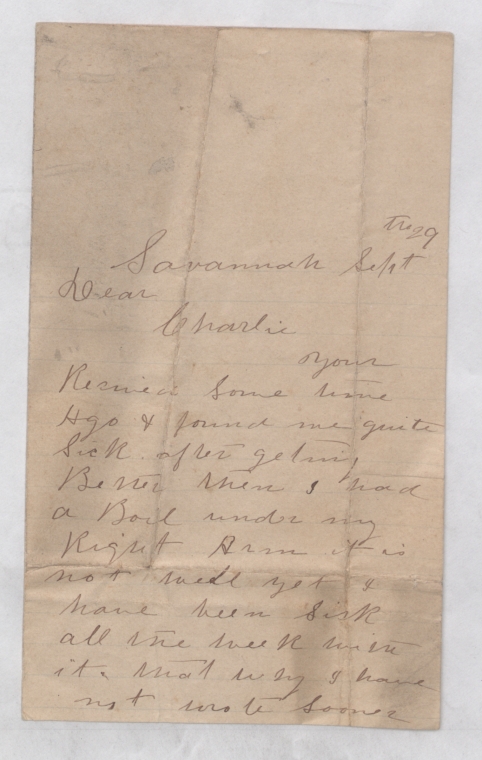 the 29
Savannah Sept
Dear
Charlie
Your
Recived Some time
Ago & found me quite
Sick. after geting
Better then I had
a Boil under my
Right Arm it is
not well yet &
have been Sick
all the week with
it. that why I have
not wrote Sooner